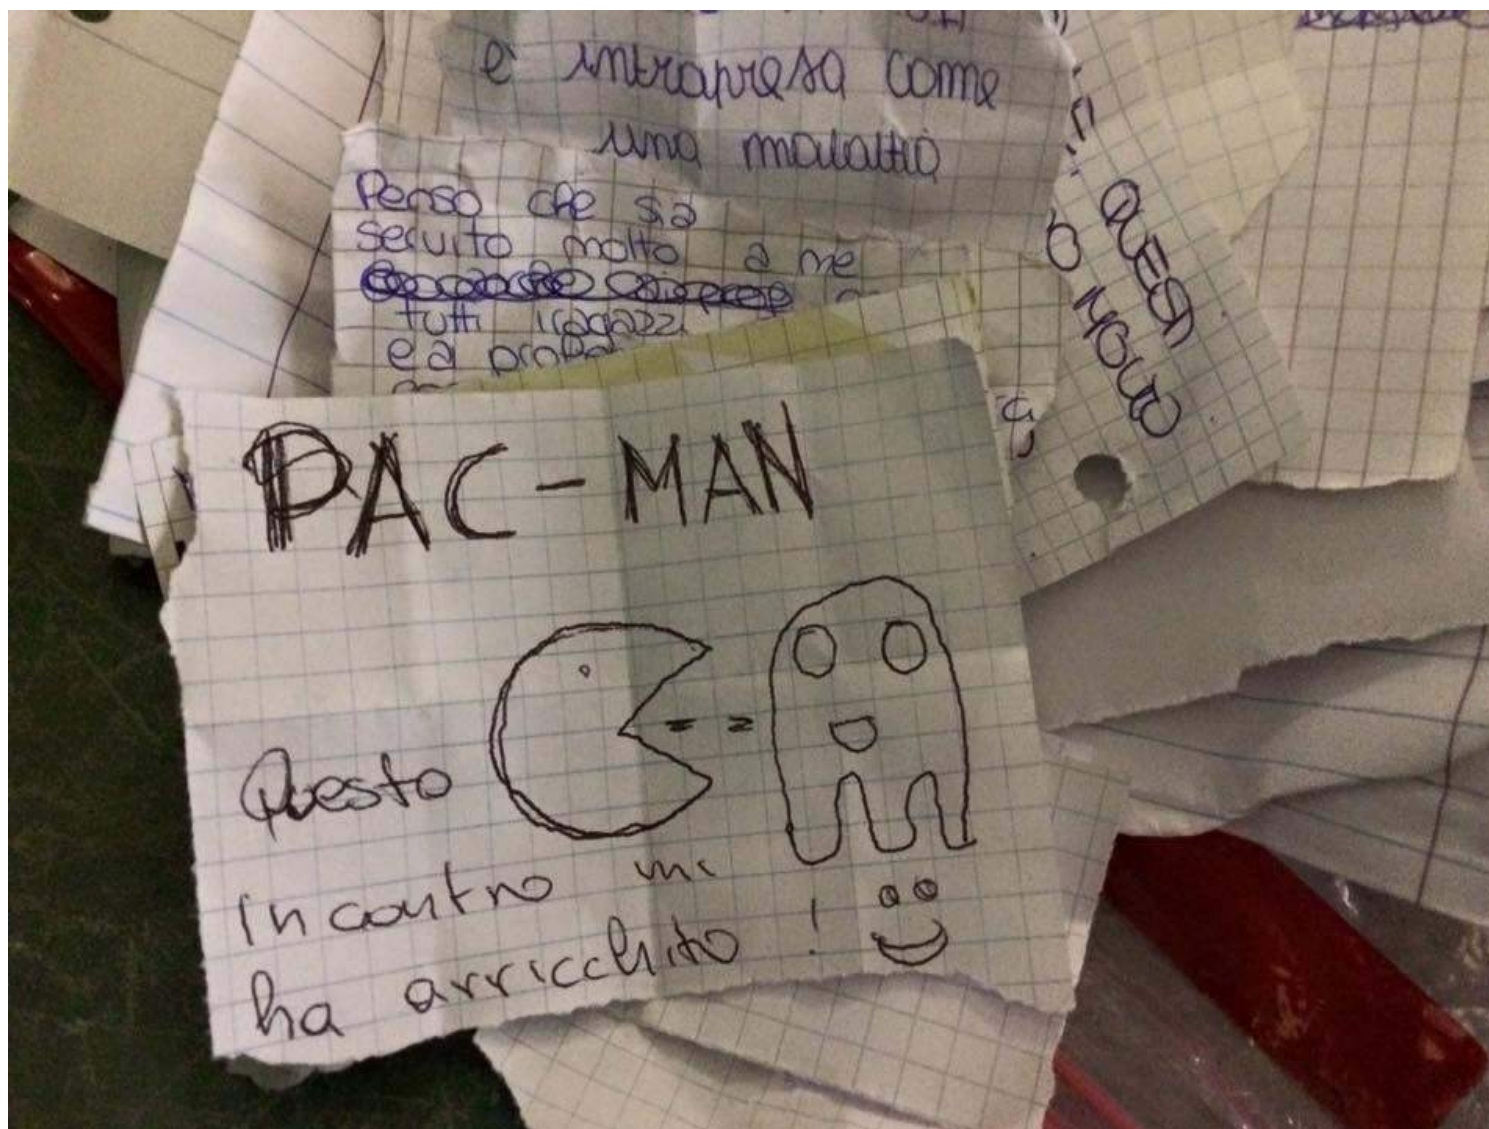 e intrapresa come
una malattia
Penso che sia
servito molto a me
tutti i ragazzi
e a
QUESTI
O MOLTO
PAC-MAN
Questo
incontro mi
ha arricchito !